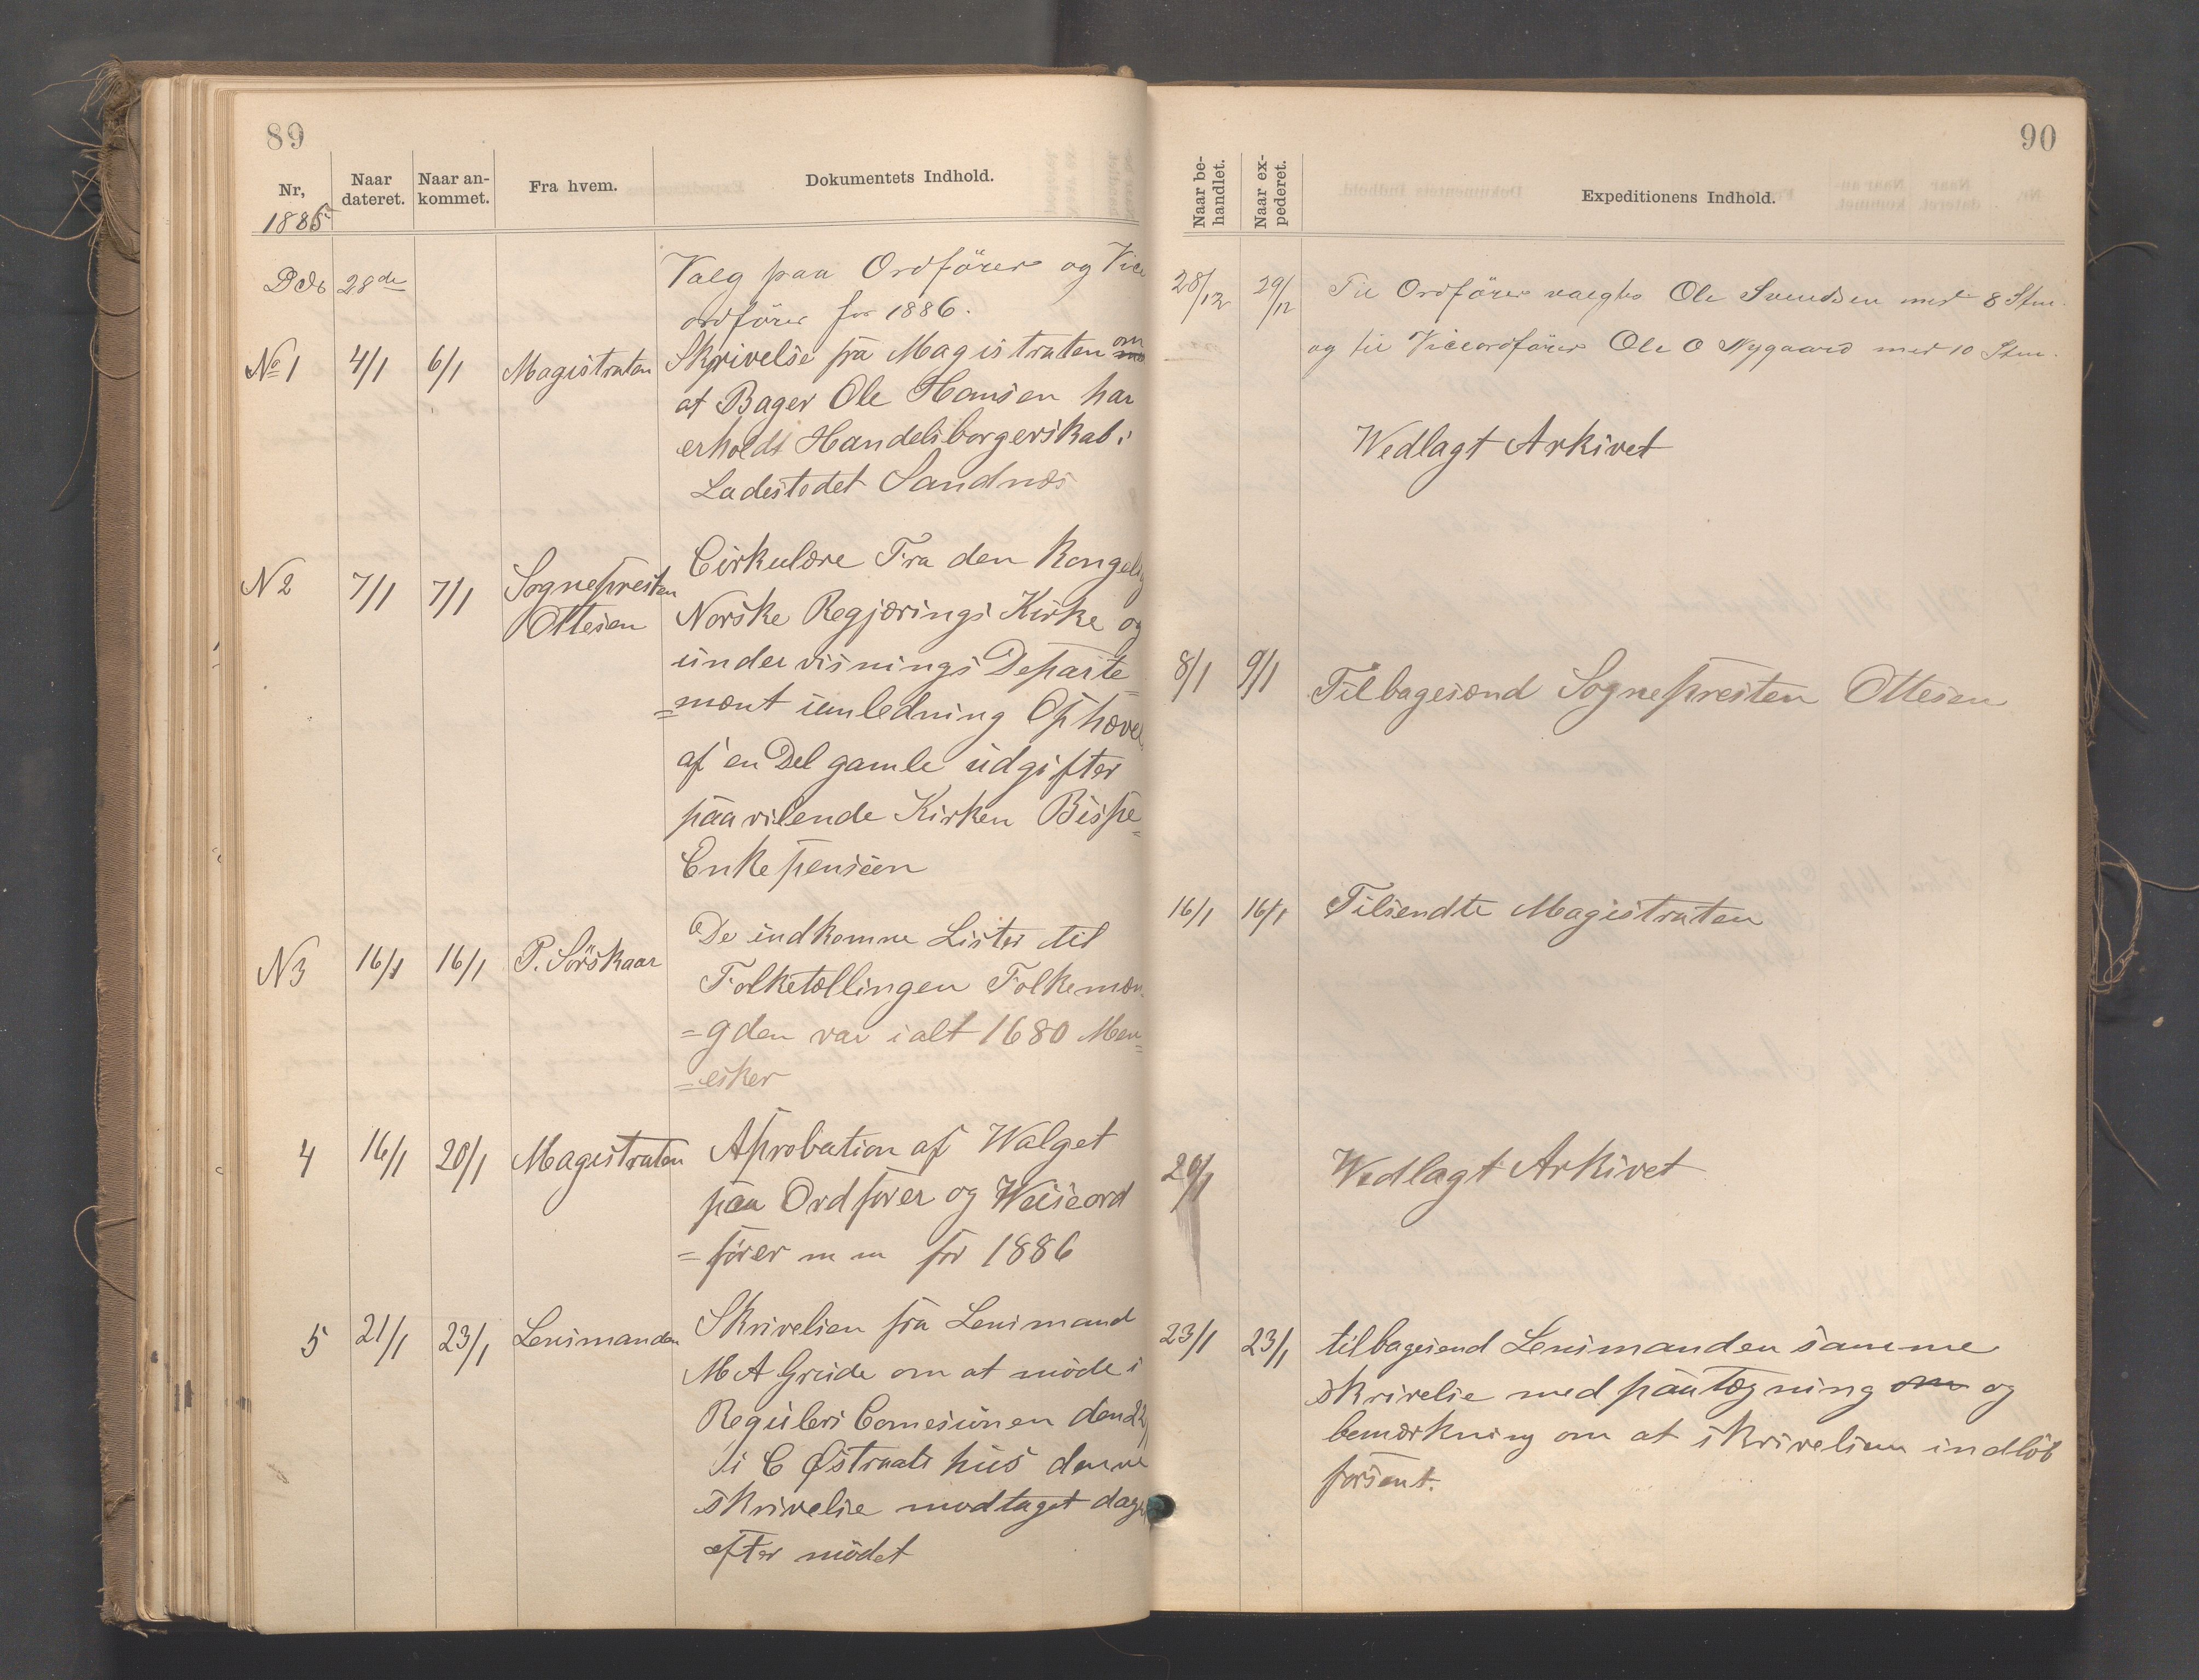 89
Nr,
1885
Naar
dateret.
Naar an-
kommet.
Fra hvem.
Dokumentets Indhold.
28de
Valg paa Ordförer og Vice
ordförer for 1886.
No 1
4/1
6/1
Magistraten
Skrivelse fra Magistraten om
at Bager Ole Hansen har
erholdt Handelsborgerskab i
Ladestedet Sandnæs
N 2
7/1
7/1
Sognepresten
Ottesen
Cirkulære Fra den Kongelig
Norske Regjærings Kirke og
undervisnings Departe
=mænt i anledning Ophævel
af en Del gamle udgifter
paavilende Kirken Bispe=
Enkepensien
N3
16/1
16/1
P. Sörskaar
De indkomne Lister til
Folketællingen Folkemæn
=gden var ialt 1680 Men=
=esker
4
16/1
20/1
Magistraten
Aprobation af Walget
paa Ordförer og Weiseord
=förer m m for 1886
5
21/1
23/1
Lensmanden
Skrivelsen fra Lensmand
M A Grude om at möde i
Regulers Comesionen den 22/1
i C Østraats hus denne
skrivelse modtaget dagen
efter mödet
90
Naar be-
handlet.
Naar ex-
pederet.
Expeditionens Indhold.
28/12
29/12
Til Ordförer valgtes Ole Svendsen med 8 Stm.
og til Viceordförer Ole O Nygaard med 10 Stm.
Wedlagt Arkivet
8/1
9/1
Tilbagesænd Sognepresten Ottesen
16/1
16/1
Tilsendte Magistraten
20/1
Wedlagt Arkivet
23/1
23/1
tilbagesend Lensmanden samme
skrivelse med paategning om og
bemærkning om at skrivelsen indlöb
forsent.